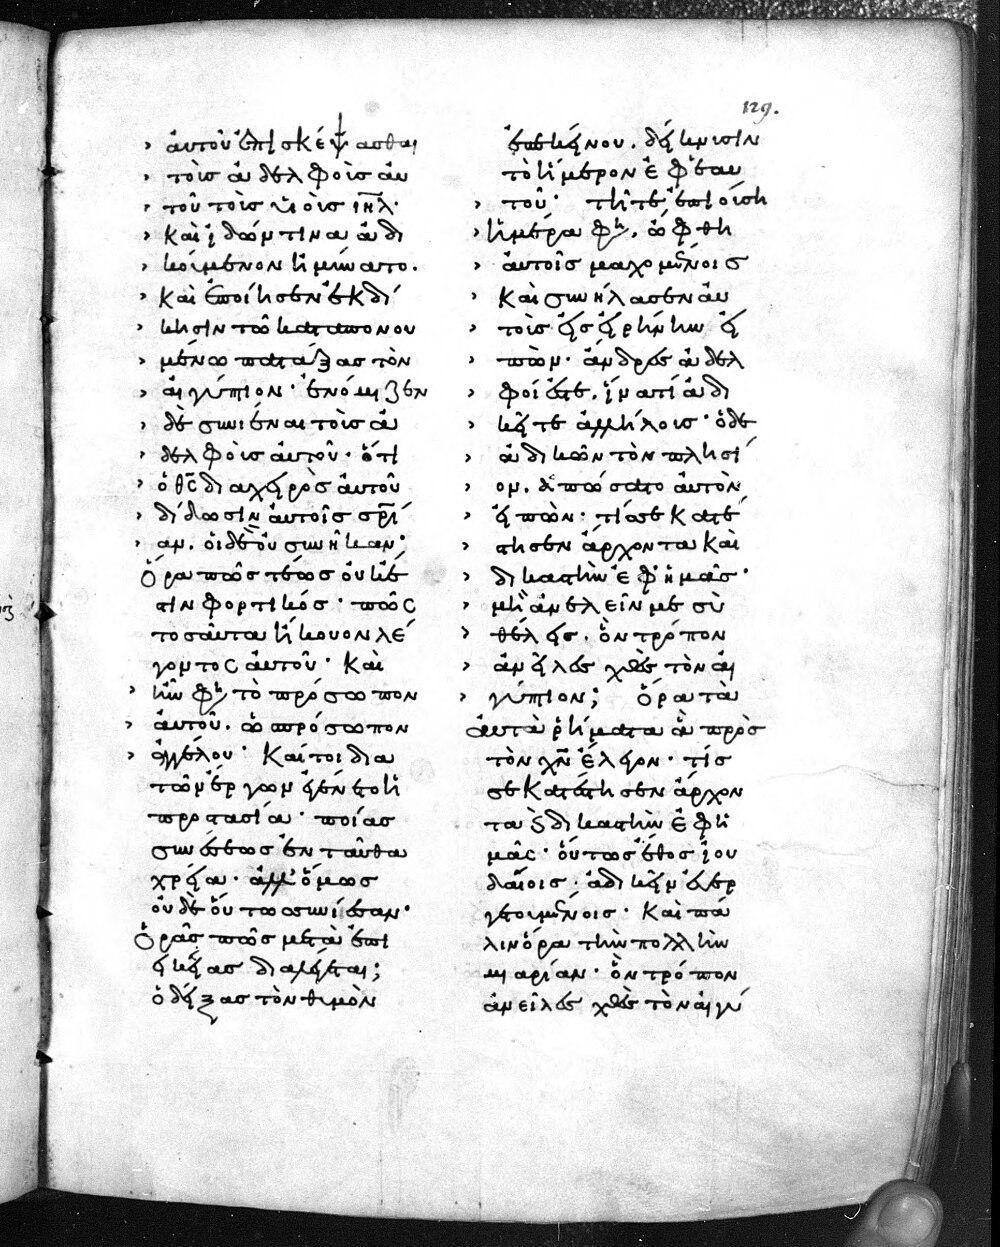 129.
› ἀυτοῦ ἐπισκέψασθαι
› τοὺσ ἀδελφοὺσ ἀυ
› τοῦ τοὺσ υἱοὺσ ιηλ·
› Καὶ ἰδὼν τινα ἀδι
› κούμενον ἠμύνατο.
› Καὶ ἐποίησεν ἐκδί
› κησιν τῶ καταπονου
› μένω πατάξασ τὸν
› ἀιγύπτιον· ἐνόμιζεν
› δὲ συνιέναι τοὺσ ἀ
› δελφοὺσ ἀυτοῦ· ὅτι
› ὁ θς διαχειρὸσ ἀυτοῦ
› δίδωσιν ἀυτοῖσ σρί
› αν. ὁι δὲ ὀυ συνῆκαν·
Ὅρα πῶσ τέωσ ὀυκέσ
τιν φορτικόσ· πῶσ
τοσαῦτα ἤκουον λέ
γοντοσ ἀυτοῦ· Καὶ
› ἦν φη τὸ πρόσωπον
› ἀυτοῦ. ὡ πρόσωπον
› ἀγγέλου· Καίτοι δια
τῶν ἔργων γέγονεν ἡ
προστασία· ποίασ
συνέσεωσ ἐνταῦθα
χρεία· ἀλλ' ὅμωσ
ὀυδὲ ὅυτωσ συνίεσαν·
Ὁρᾶσ πῶσ μετὰ ἐπι
εικείασ διαλέγεται;
ὁ δείξασ τὸν θυμὸν
ἐπ' ἐκείνου. δείκνυσιν
τὸ ἥμερον ἐφ' ἑαυ
τοῦ· τῆ τε ἐπιούση
› ἡμέρα φη, ὤφθη
› ἀυτοῖσ μαχομένοισ
› Καὶ συνήλασεν ἀυ
› τοὺσ ἐισ ἐιρήνην ἐι
› πών· ἄνδρεσ ἀδελ
› φοί ἐστε, ἵνατί ἀδι
› κεῖτε ἀλλήλουσ· ὁ δὲ
› ἀδικῶν τὸν πλησί
› ον. ἀπώσατο ἀυτὸν
› ἐιπών· τίσ σε κατέ
› στησεν ἄρχοντα Καὶ
› δικαστὴν ἐφ' ἡμᾶσ·
› μὴ ἀνελεῖν με σὺ
› θέλεισ. ὃν τρόπον
› ἀνεῖλεσ χθὲσ τὸν ἀι
› γύπτιον; ὅρα τὰ
ἀυτὰ ῥήματα ἃ πρὸσ
τὸν χν ἔλεγον· τίσ
σε κατέστησεν ἄρχον
τα ϗ δικαστὴν ἐφ' ἡ
μᾶσ· ὅυτωσ ἔθοσ ἰου
δαίοισ· ἀδικεῖν ἐυερ
γετουμένοισ· Καὶ πά
λιν ὅρα τὴν πολλὴν
μιαρίαν· ὃν τρόπον
ἀνεῖλεσ χθὲσ τὸν ἀιγύ